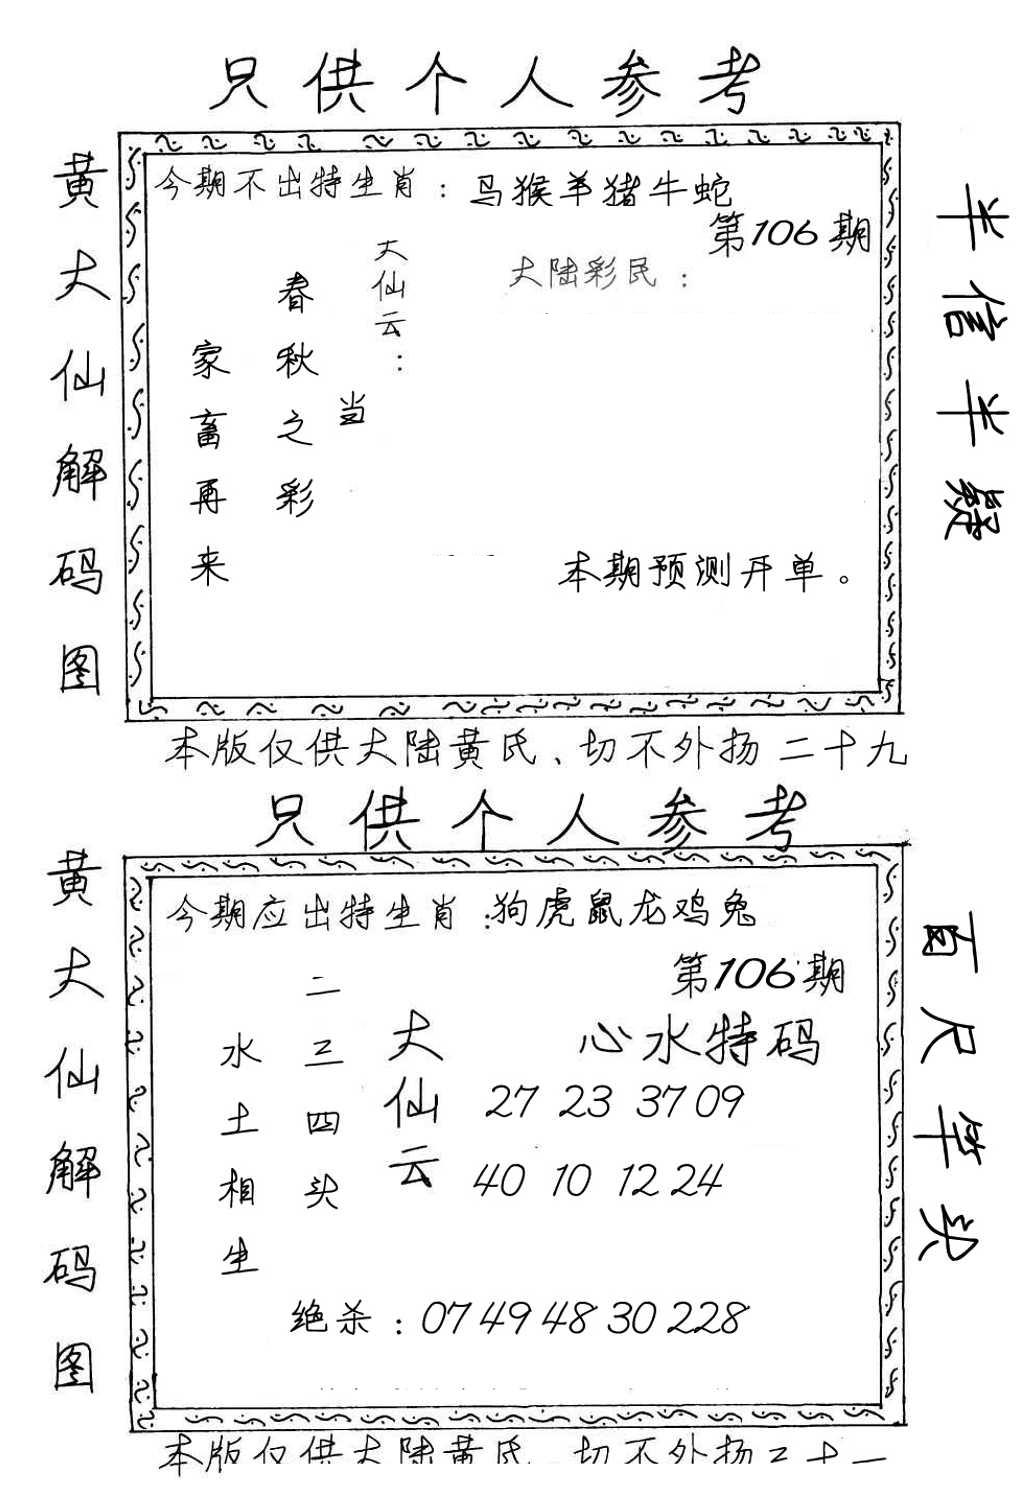 只供个人参考
黄大仙解码图
今期不出特生肖：马猴羊猪牛蛇
第106期
大仙云：
大陆彩民：
当
春秋之彩
家畜再来
本期预测开单。
半信半疑
本版仅供大陆黄氏、切不外扬二十九
只供个人参考
黄大仙解码图
今期应出特生肖：狗虎鼠龙鸡兔
第106期
心水特码
大仙云
27 23 37 09
40 10 12 24
二三四头
水土相生
绝杀：07 49 48 30 228
百尺竿头
本版仅供大陆黄氏 切不外扬